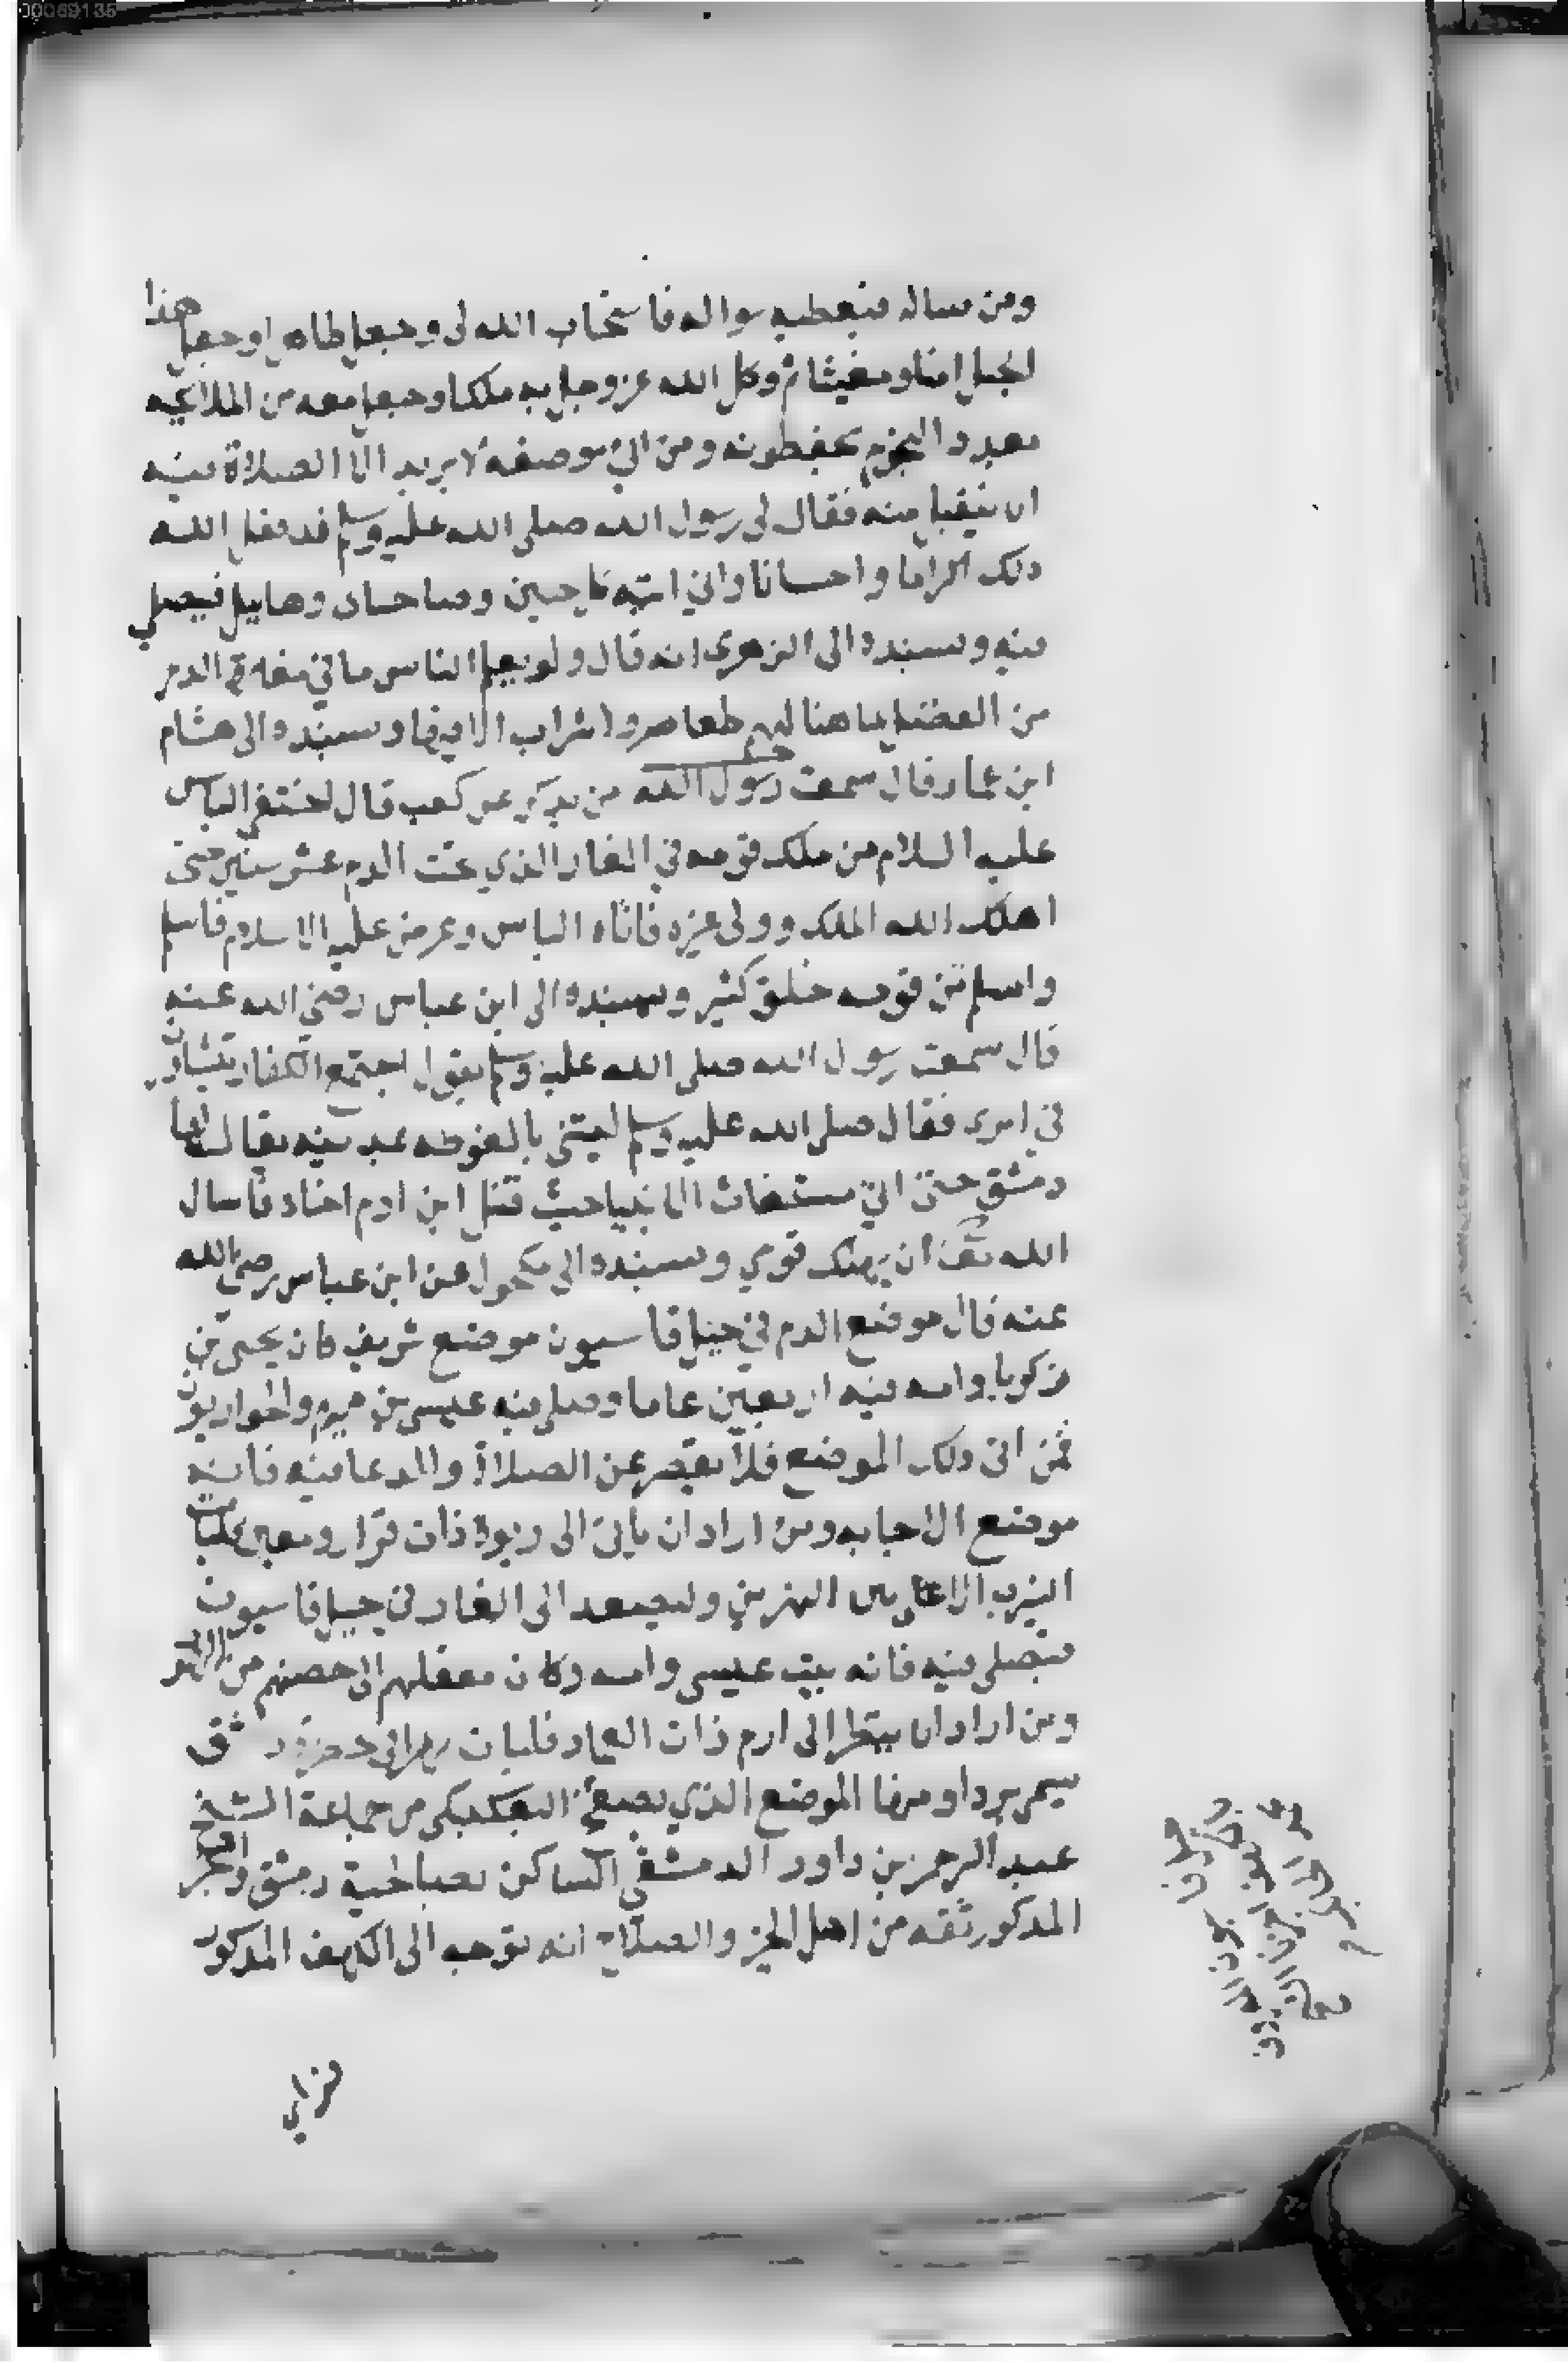 00069135
ومن ساله فيعطيه سواله فاستجاب الله لى وجعل طاهرا وجعل هذا
الجبل امنا ومغيثا ثم وكل الله عز وجل به ملكا وجعل معه من الملائكه
بعدد النجوم يحفظونه ومن اتى موضعه لا يريد الا الصلاة فيه
ان يتقبل منه فقال لى رسول الله صلى الله عليه وسلم قد فعل الله
ذلك اكراما واحسانا وانى اتيه كل خميس وصاحباى وهابيل فنصلي
فيه وبسنده الى الزهرى انه قال ولو يعلم الناس ما في مغارة الدم
من الفضل لما هنا لهم طعام ولا شراب الا فيها وبسنده الى هشام
ابن عمار قال سمعت من يذكر عن كعب قال اختفى الياس
عليه السلام من ملك قومه في الغار الذي تحت الدم عشر سنين حتى
اهلك الله الملك وولى غيره فاتاه الياس وعرض عليه الاسلام فاسلم
واسلم من قومه خلق كثير وبسنده الى ابن عباس رضي الله عنه
قال سمعت رسول الله صلى الله عليه وسلم يقول اجتمع الكفار يتشاورن
في امرى فقال صلى الله عليه وسلم ليتنى بالغوطه بمدينه يقال لها
دمشق حتى اتى مستغاث الانبيا حيث قتل ابن ادم اخاه فاسال
الله تعا ان يهلك قومي وبسنده الى مكحول عن ابن عباس رضى الله
عنه قال موضع الدم في جبل قاسيون موضع شريف كان يحيى بن
زكريا وامه فيه اربعين عاما وصلى فيه عيسى بن مريم والحواريون
فمن اتى ذلك الموضع فلا يقصر عن الصلاة والدعا فيه فانه
موضع الاجابه ومن اراد ان ياتى الى ربوة ذات قرار ومعين فليات
النيرب الاعلى بين النهرين وليصعد الى الغار في جبل قاسيون
فيصلى فيه فانه بيت عيسى وامه وكان معقلهم الى حصنهم من اليهود
ومن اراد ان ينظر الى ارم ذات العماد فليات نهرا في حفرة دمشق
يسمى بردا ومنها الموضع الذي
عبد الرحمن بن داود الدمشقي الساكن بصالحية دمشق
المذكور ثقه من اهل الخير والصلاح انه توجه الى الكهف المذكور
فراي